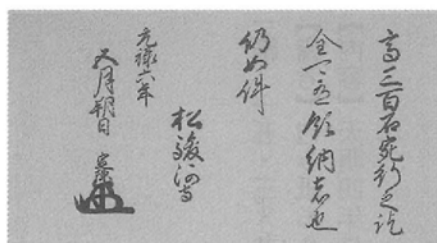 高三百石宛行之訖
全可有領納者也
仍如件
松駿河守
元禄六年
五月朔日